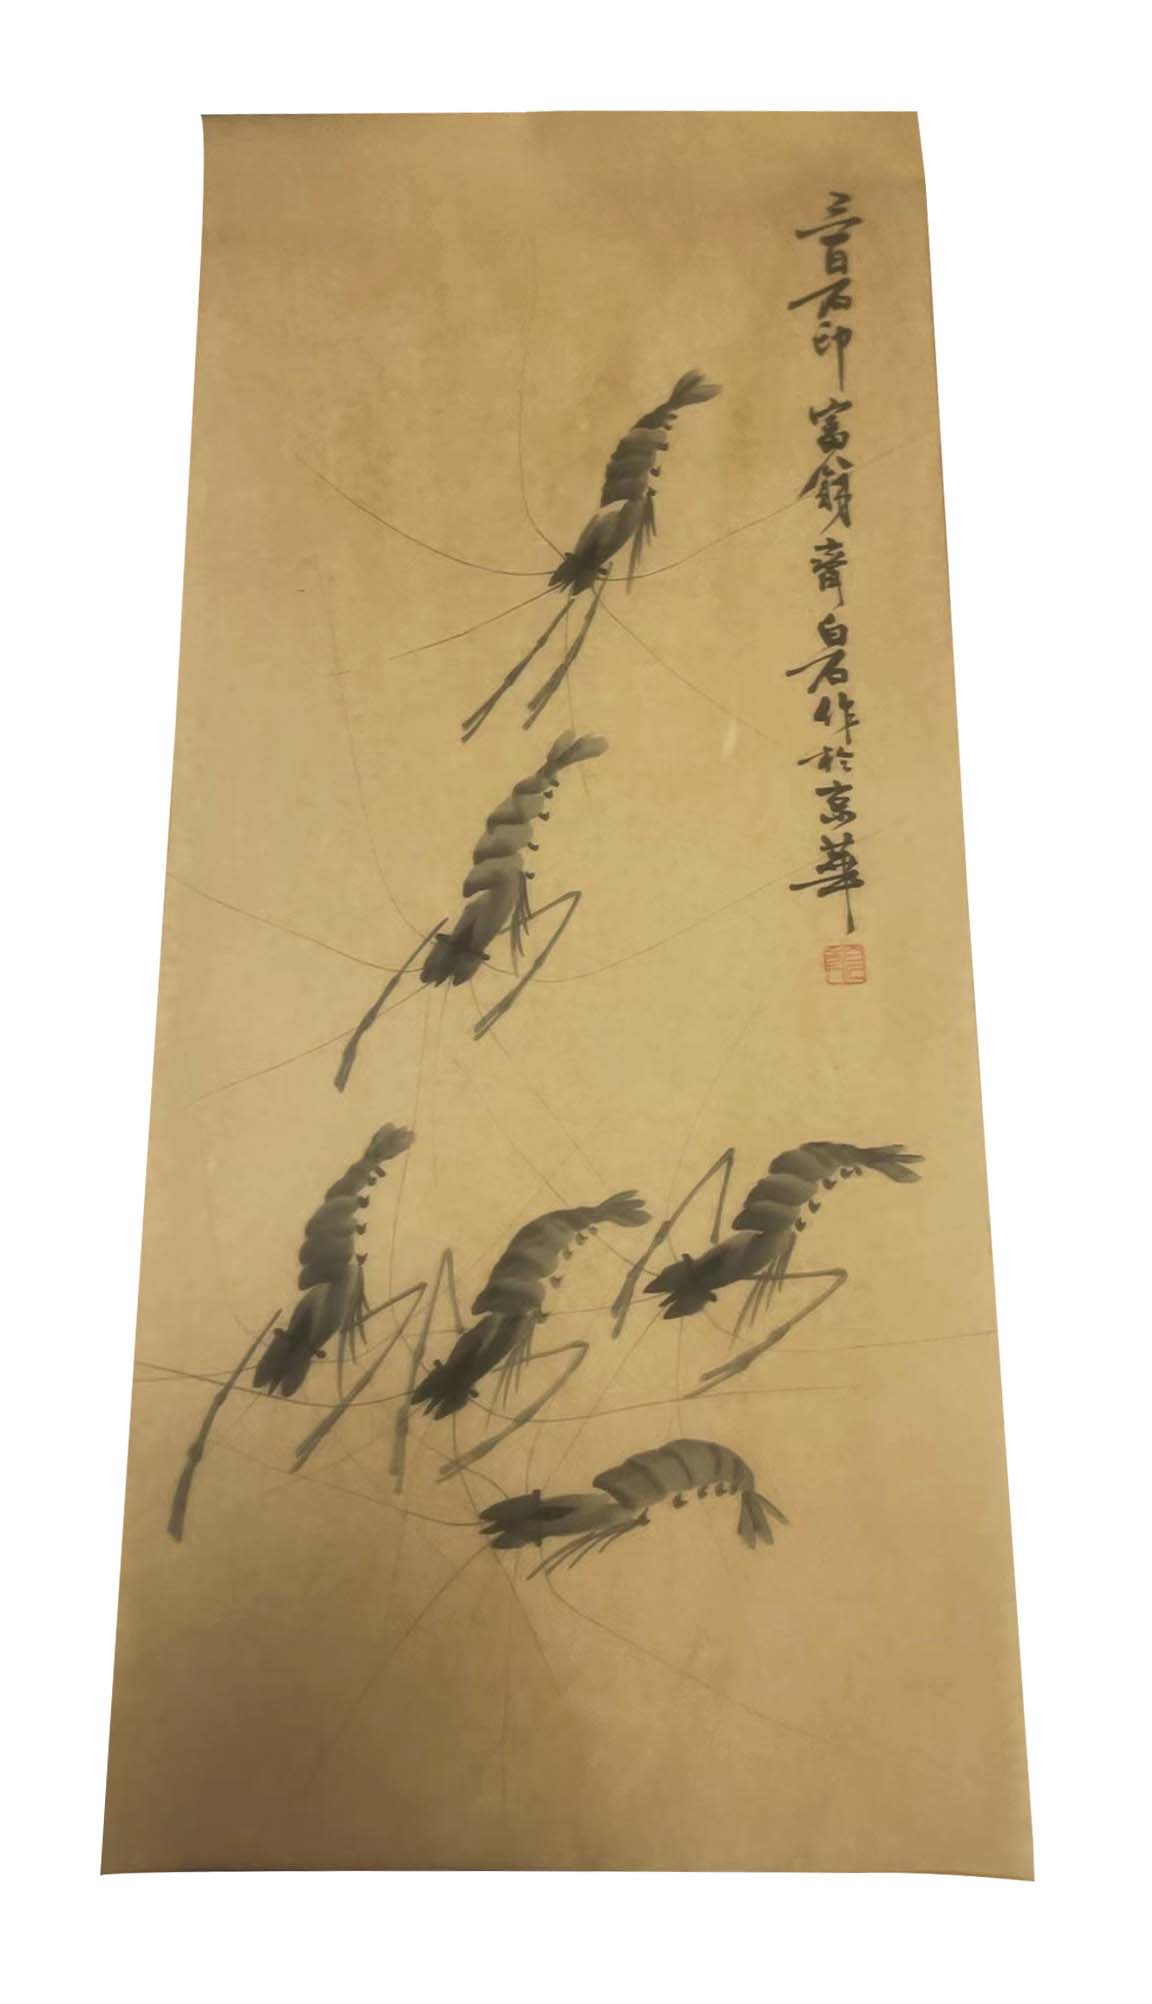 三百石印富翁齊白石作於京華